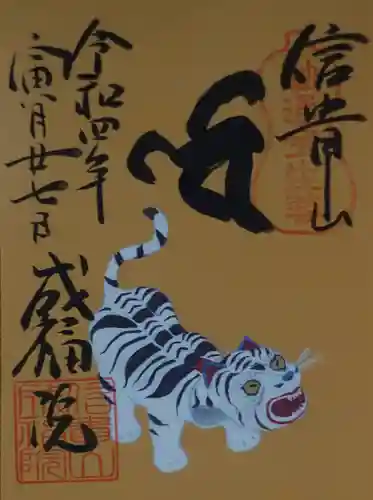 信貴山
令和四年
寅月廿七日
成福院